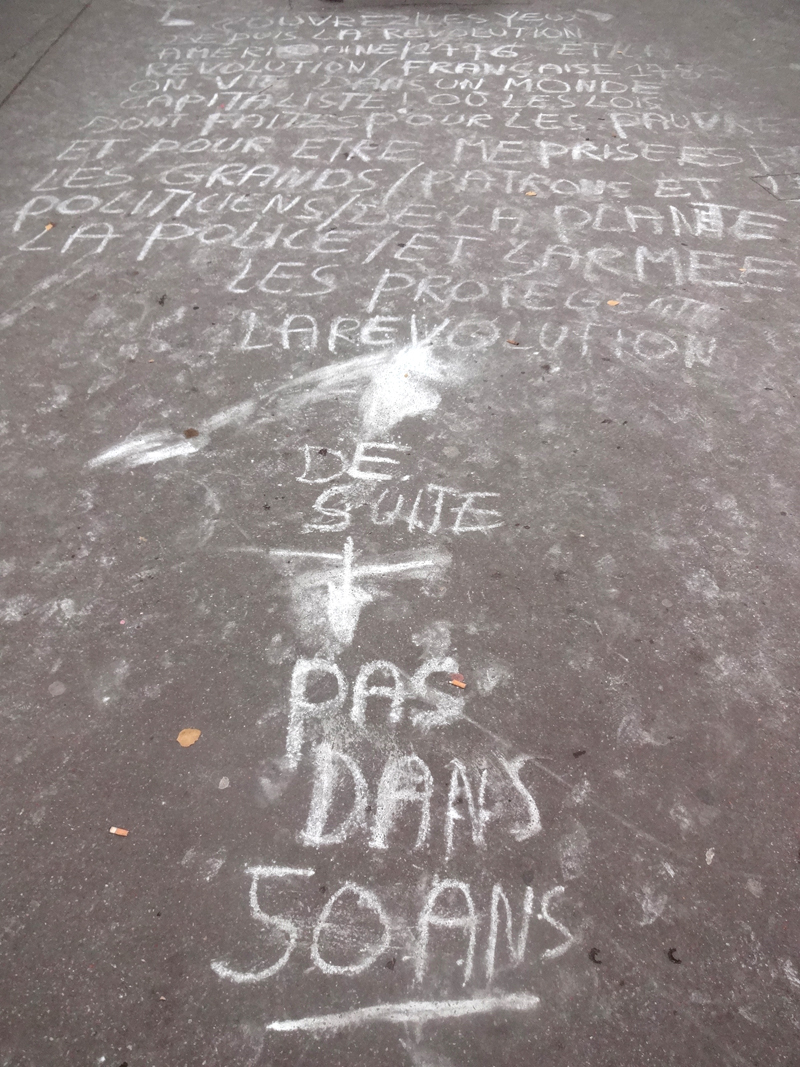 OUVREZ LES YEUX
DEPUIS LA REVOLUTION
AMERICAINE/1776 ET LA
REVOLUTION/FRANÇAISE
ON VIE DANS UN MONDE
CAPITALISTE! OÙ LES LOIS
DONT FAITES POUR LES PAUVRE
ET POUR ETRE MEPRISEES
LES GRANDS/PATRONS ET
POLITICIENS/DE LA PLANTE
LA POLICE/ET LARMEE
LES PROTEGENT
LA REVOLUTION
DE
SUITE
PAS
DANS
50 ANS